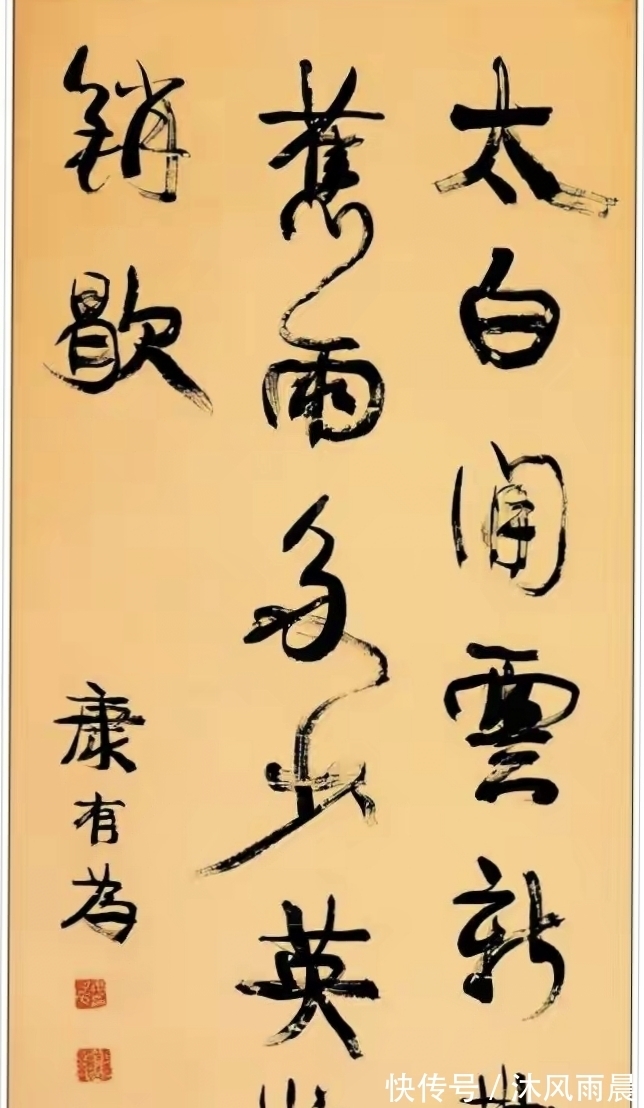 太白閒雲新
舊雨多少英
銷歇
康有為
快传号/沐风雨晨